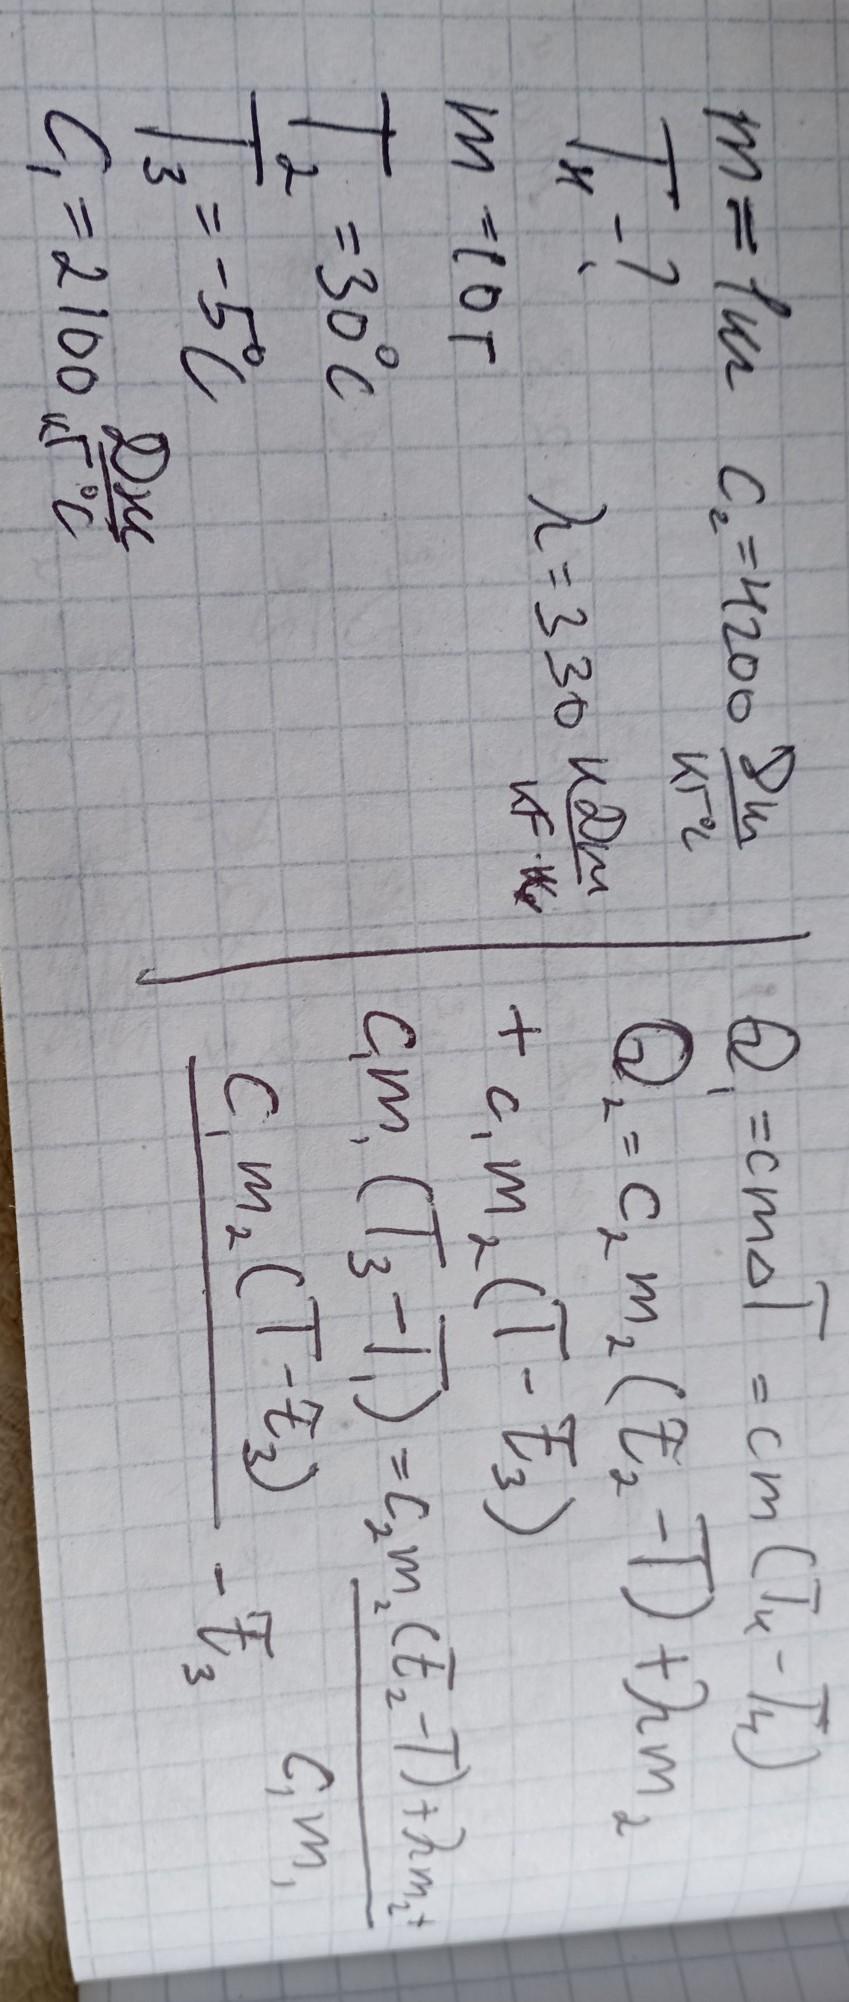 m = 1кг c₂ = 4200 Дж/кг°C
Tₓ - ?
m = 10 г λ = 330 кДж/кг
T₂ = 30°C
T₃ = -5°C
C₁ = 2100 Дж/кг°C
Q₁ = cmΔT = cm(Tк - Tн)
Q₂ = c₂m₂(t₂ - T) + λm₂
+ c₁m₂(T - t₃)
C₁m₁(T₃ - T₁) = c₂m₂(t₂ - T) + λm₂ +
C₁m₂(T - t₃) - t₃
C₁m₁